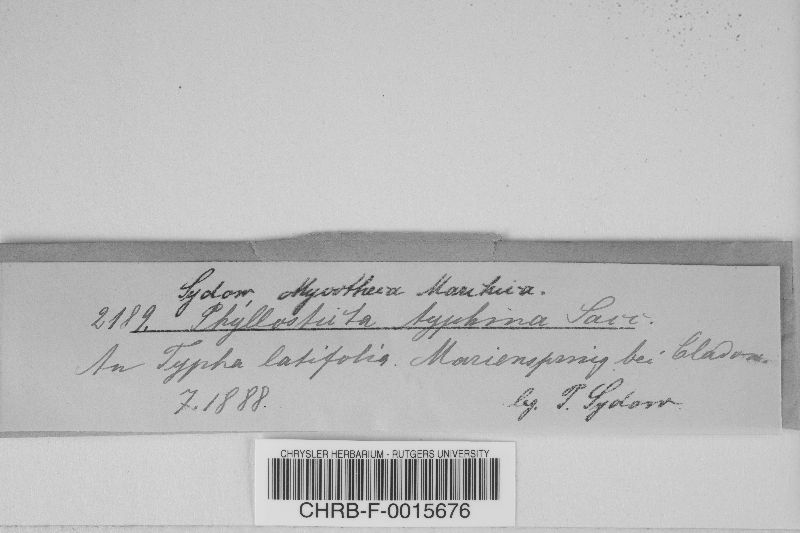 Sydow, Mycotheca Marchica.
2189. Phyllosticta typhina Sacc.
An Typha latifolia. Marienspring bei Cladow.
7.1888.
lg. P. Sydow.
CHRYSLER HERBARIUM - RUTGERS UNIVERSITY
CHRB-F-0015676